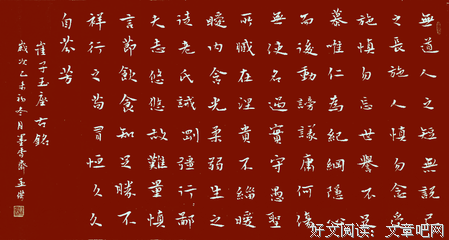 無道人之短無說己
之長施人慎勿念受
施慎勿忘世譽不足
慕唯仁為紀綱隱心
而後動謗議庸何傷
無使名過實守愚聖
所臧在涅貴不緇曖
曖内含光柔弱生之
徒老氏誡剛彊行行鄙
夫志悠悠故難量慎
言節飲食知足勝不
祥行之苟有恒久久
自芬芳
崔子玉座右銘
歲次乙未初冬月
好文阅读：文章吧网